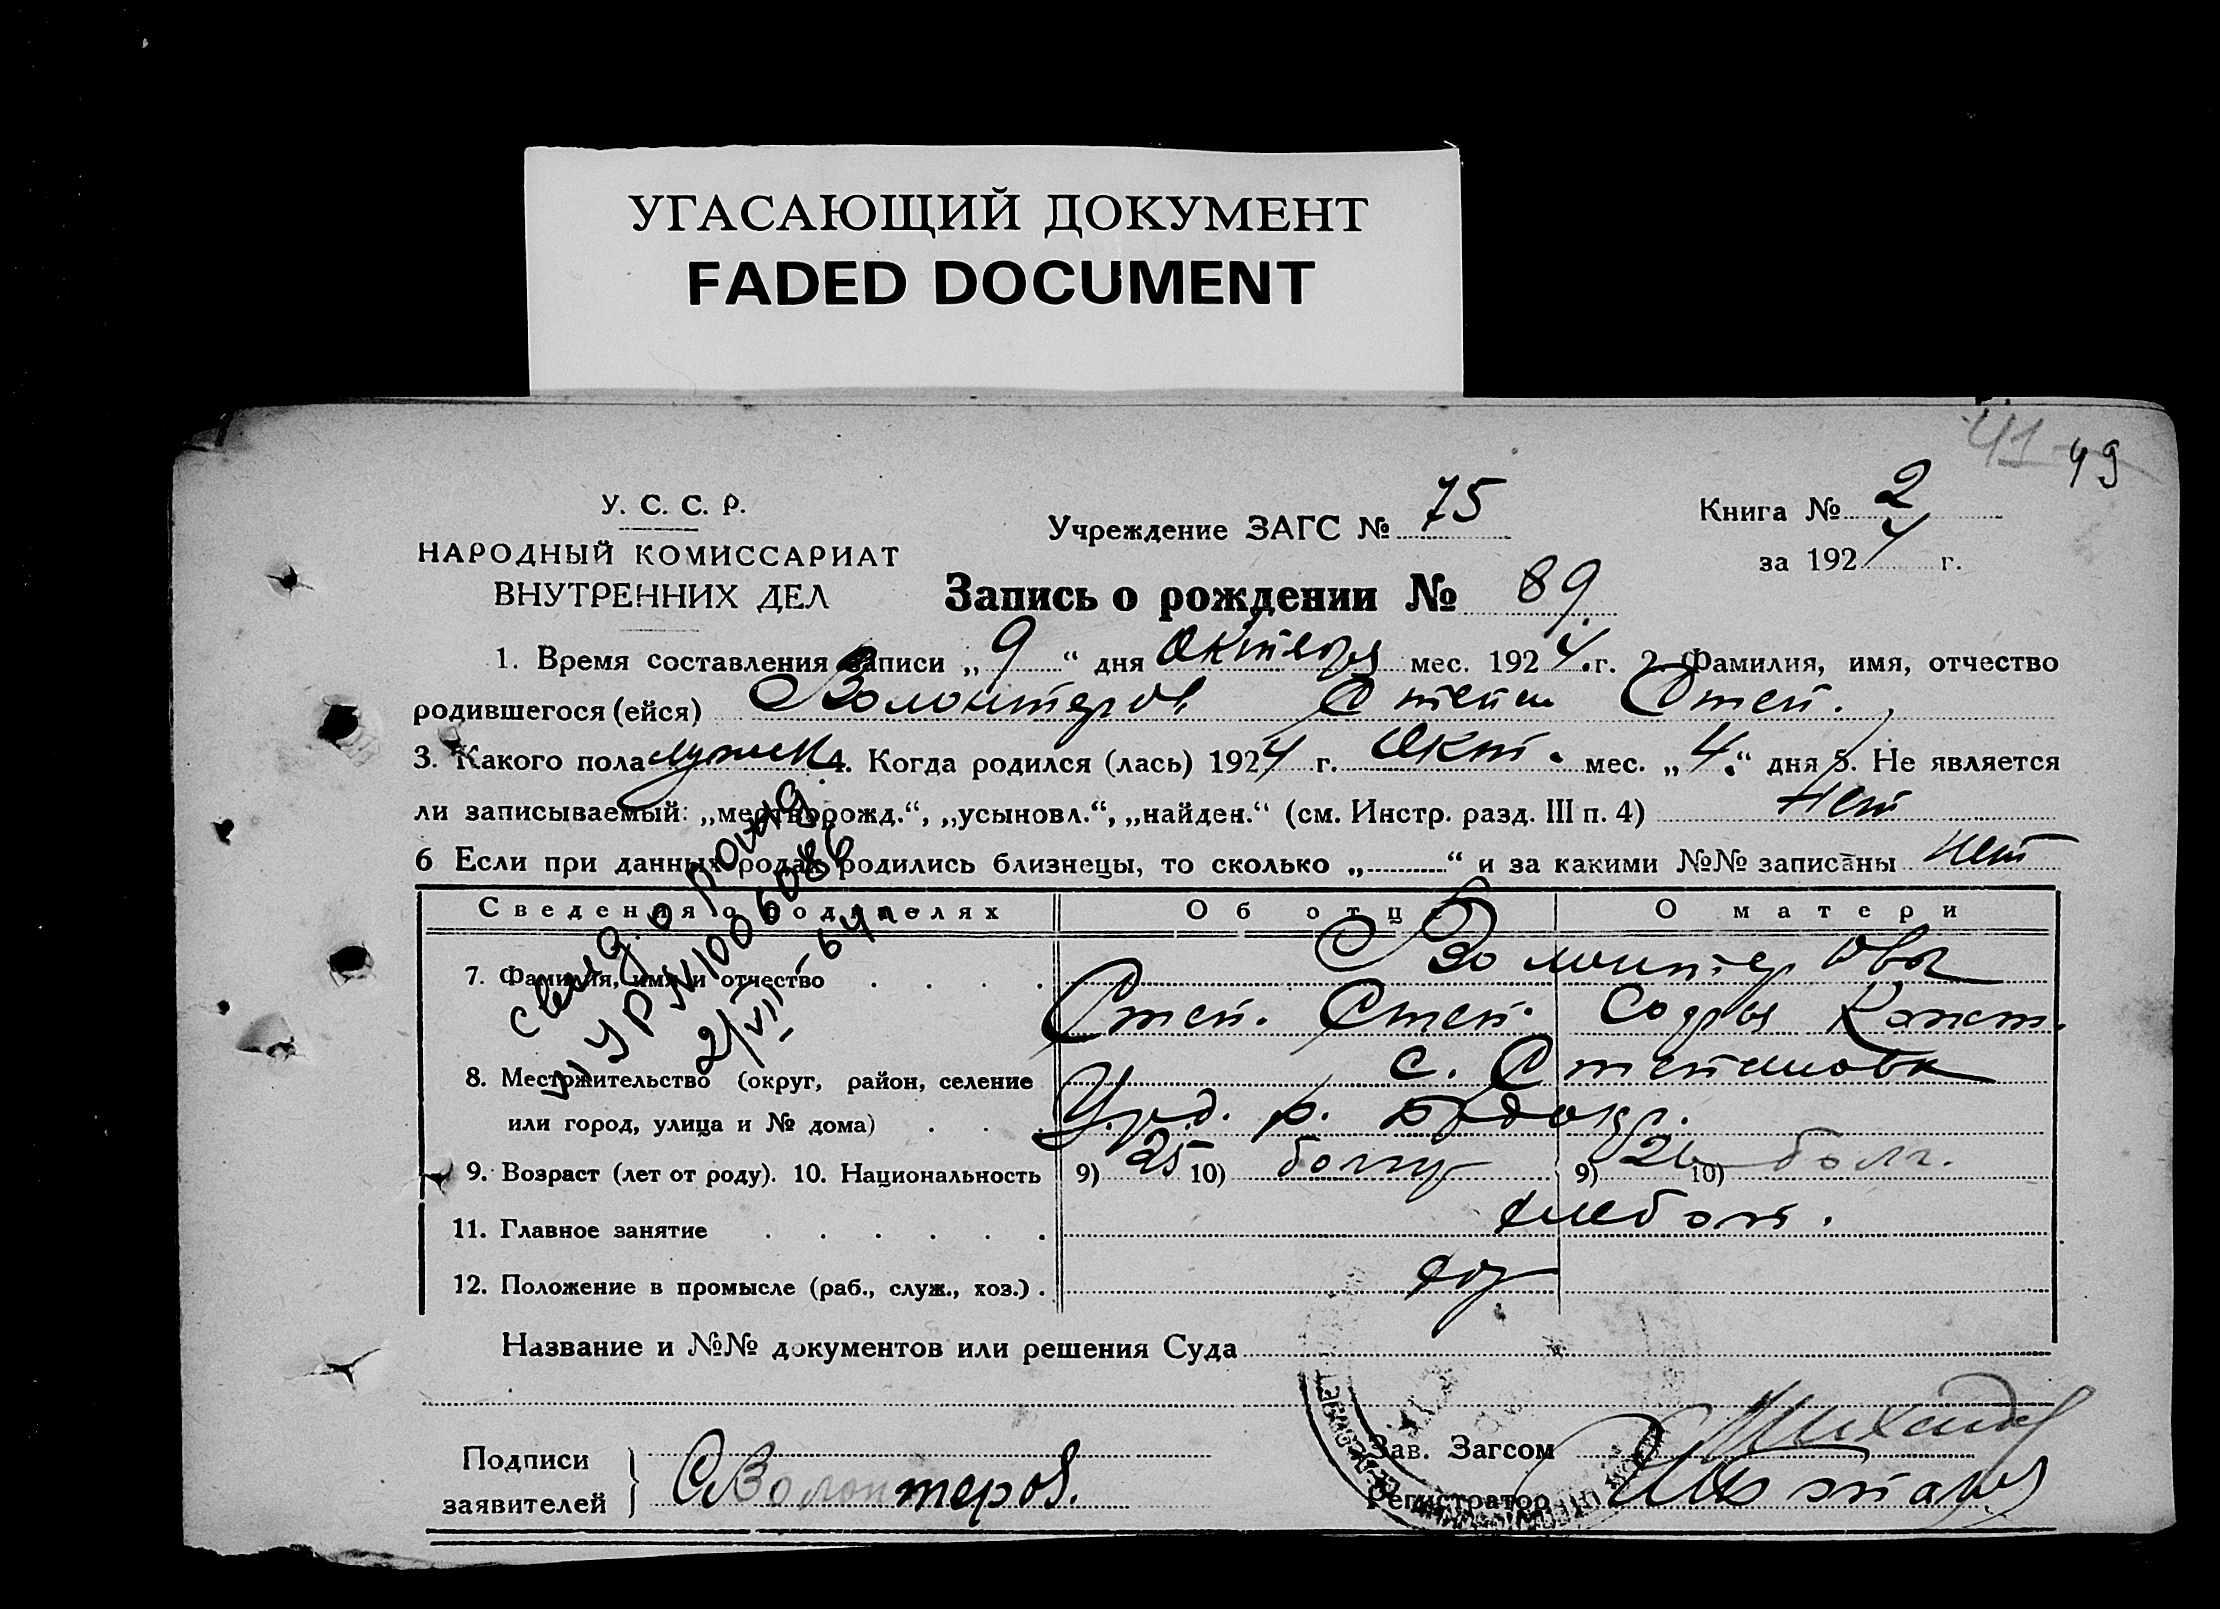 УГАСАЮЩИЙ ДОКУМЕНТ
FADED DOCUMENT
41 49
У. С. С. Р.
НАРОДНЫЙ КОМИССАРИАТ
ВНУТРЕННИХ ДЕЛ
Учреждение ЗАГС № 75
Книга № 2
за 1924 г.
Запись о рождении № 89
1. Время составления записи „9“ дня Октября мес. 1924 г. 2. Фамилия, имя, отчество
родившегося (ейся) Волонтеров Степан Степ.
3. Какого пола мужск 4. Когда родился (лась) 1924 г. Окт. мес. „4.“ дня 5. Не является
ли записываемый: „мертворожд.“, „усыновл.“, „найден.“ (см. Инстр. разд. III п. 4) Нет
6 Если при данных родах родились близнецы, то сколько „ “ и за какими №№ записаны нет
свид. о рожд.
УР №1006086
2/VII-64
Сведения о родителях Об отце О матери
7. Фамилия, имя и отчество Волонтеровы
Степ. Степ. Софья Конст.
8. Местожительство (округ, район, селение с. Степановка
или город, улица и № дома)
9. Возраст (лет от роду). 10. Национальность 9) 25 10) 9) 26 10) болг.
11. Главное занятие хлебоп.
12. Положение в промысле (раб., служ., хоз.) хоз
Название и №№ документов или решения Суда
Подписи
заявителей
СВолонтеров.
Зав. Загсом
Регистратор